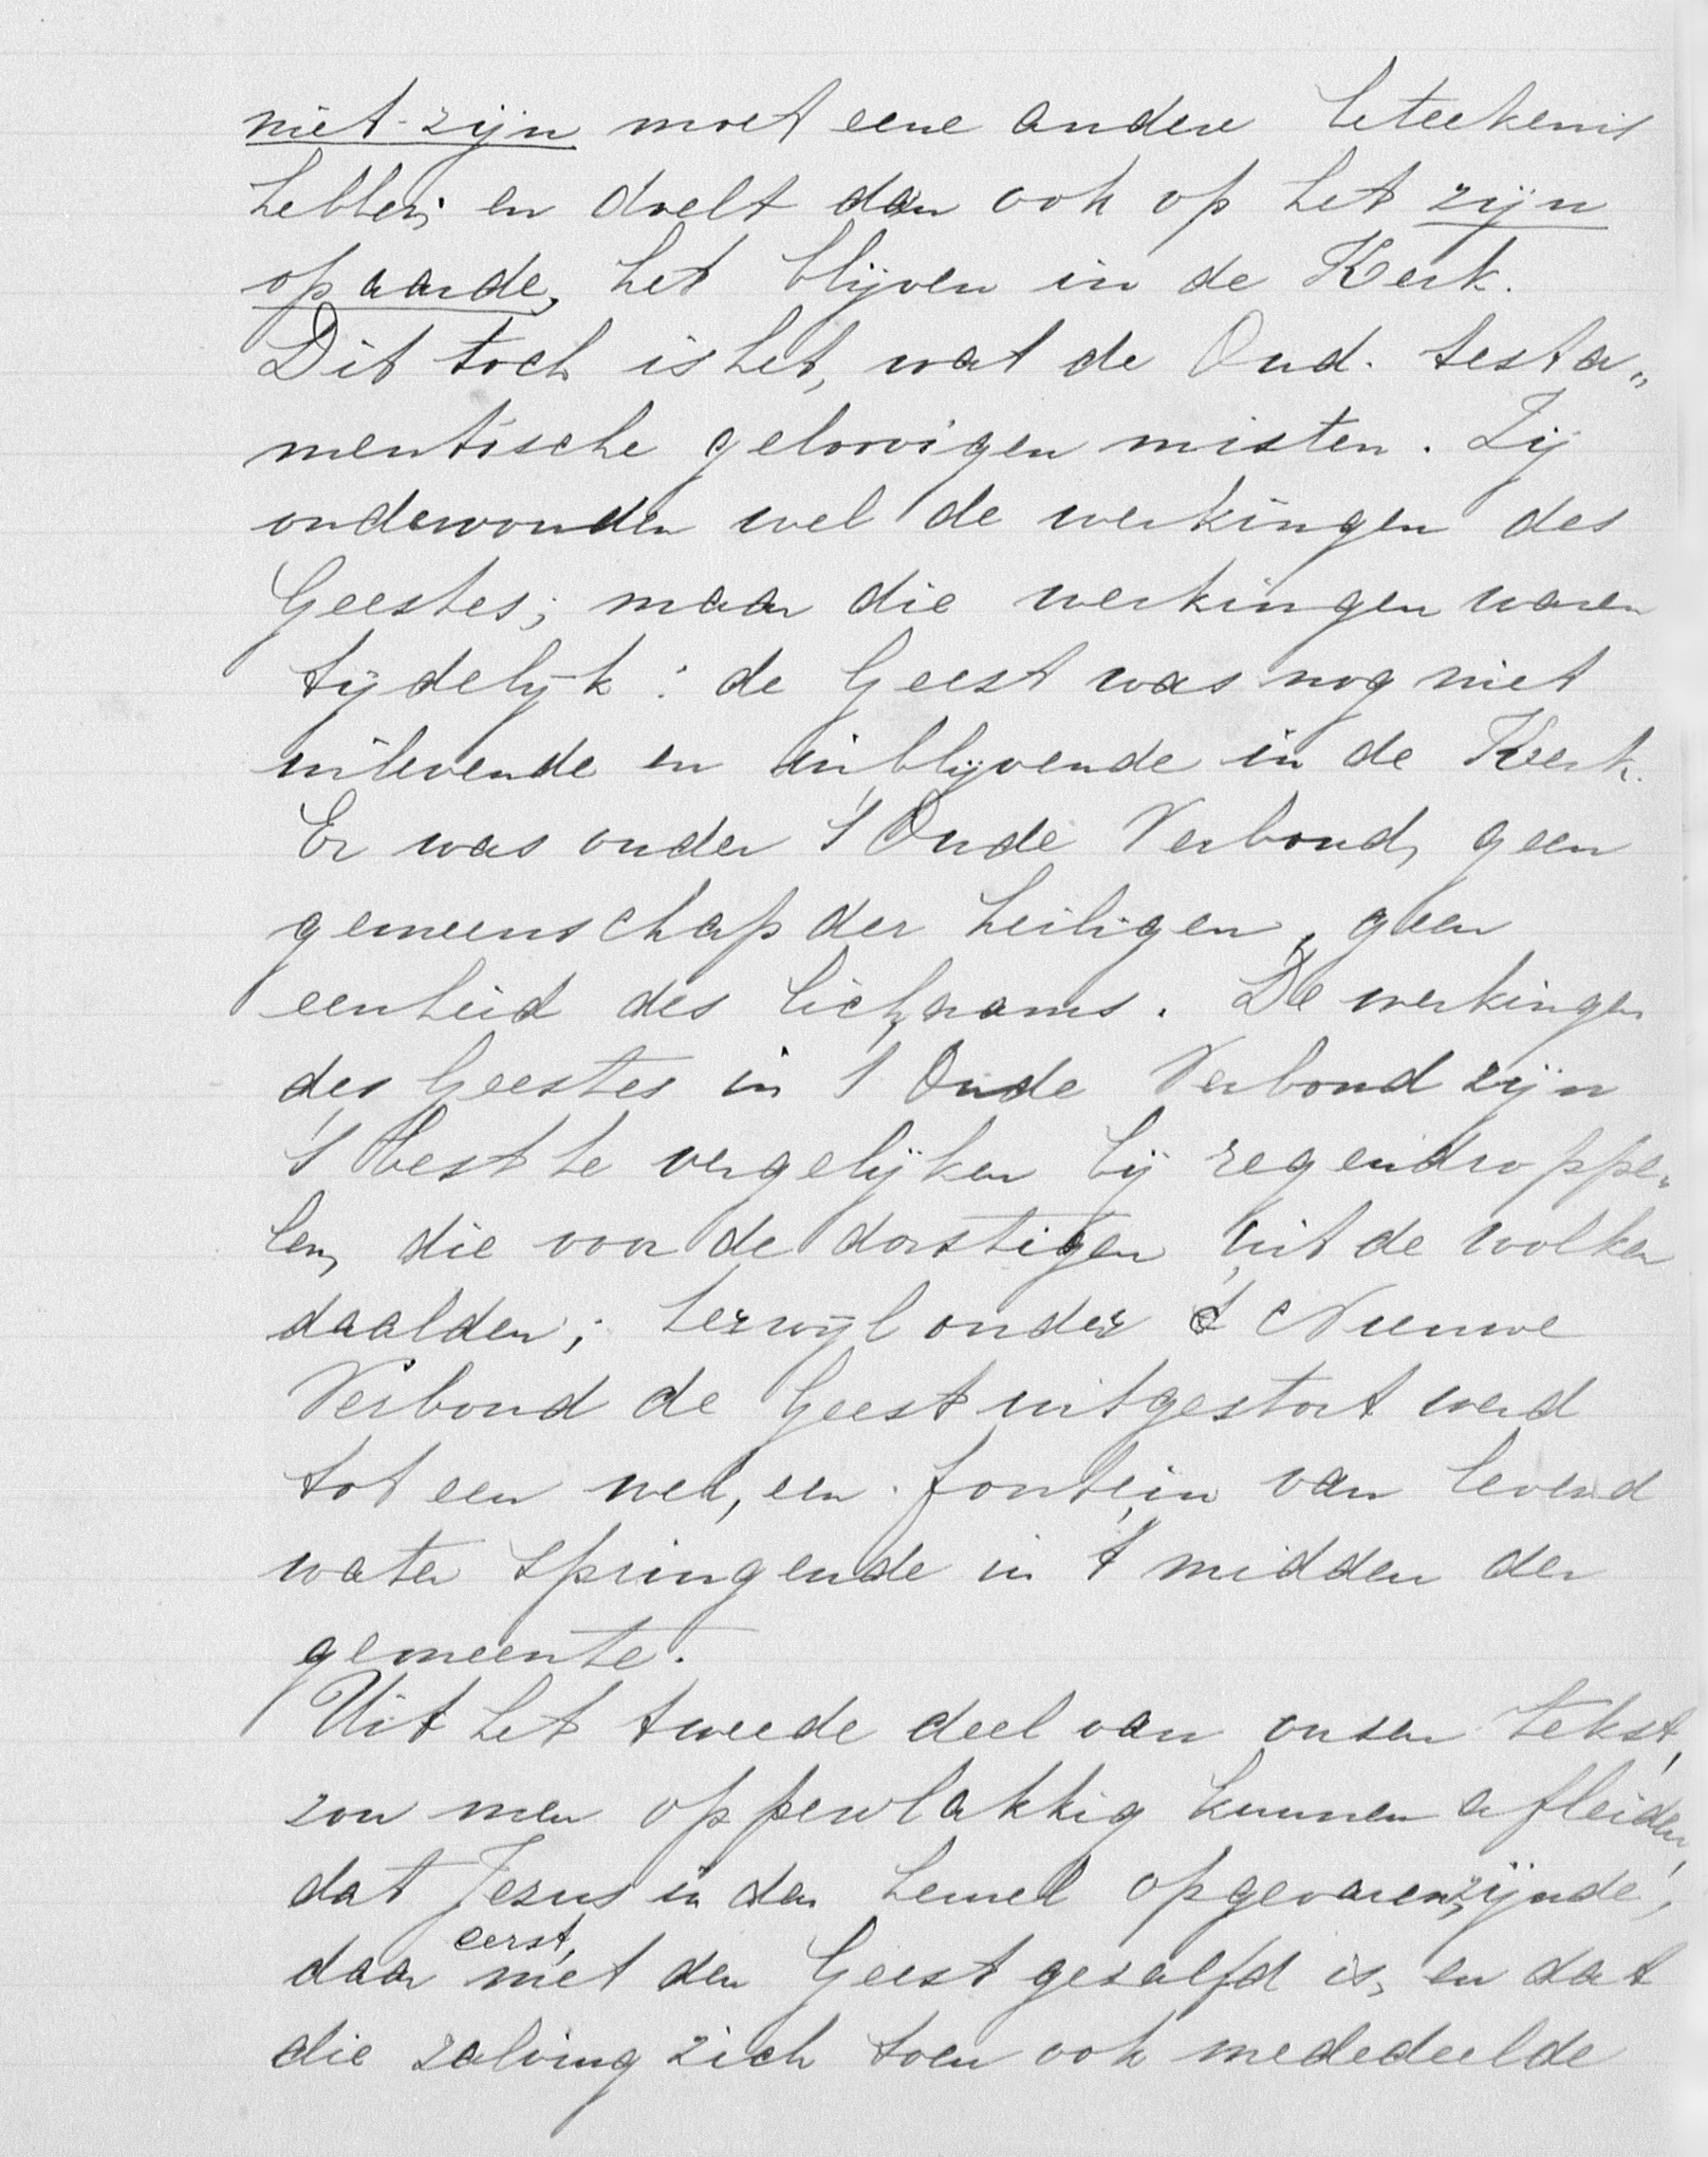 niet-zijn moet eene andere beteekenis
hebben; en doelt dan ook op het zijn
op aarde, het blijven in de Kerk.
Dit toch is het, wat de Oud-testa„
mentische geloovigen misten. Zij
ondervonden wel de werkingen des
Geestes; maar die werkingen waren
tijdelijk: de Geest was nog niet
inlevende en inblijvende in de Kerk.
Er was onder 't Oude Verbond, geen
gemeenschap der heiligen, geen
eenheid des lichnaams. De werkingen
des Geestes in 't Oude Verbond zijn
't best te vergelijken bij regendroppe„
len, die voor de dorstigen uit de wolken
daalden; terwijl onder 't Nieuwe
Verbond de Geest uitgestort werd
tot een wel, een fontein van levend
water springende in 't midden der
gemeente.
Uit het tweede deel van onzen tekst,
zou men oppervlakkig kunnen afleiden,
dat Jezus in den hemel opgevaren zijnde,
daar eerst, met den Geest gezalfd is, en dat
die zalving zich toen ook mededeelde